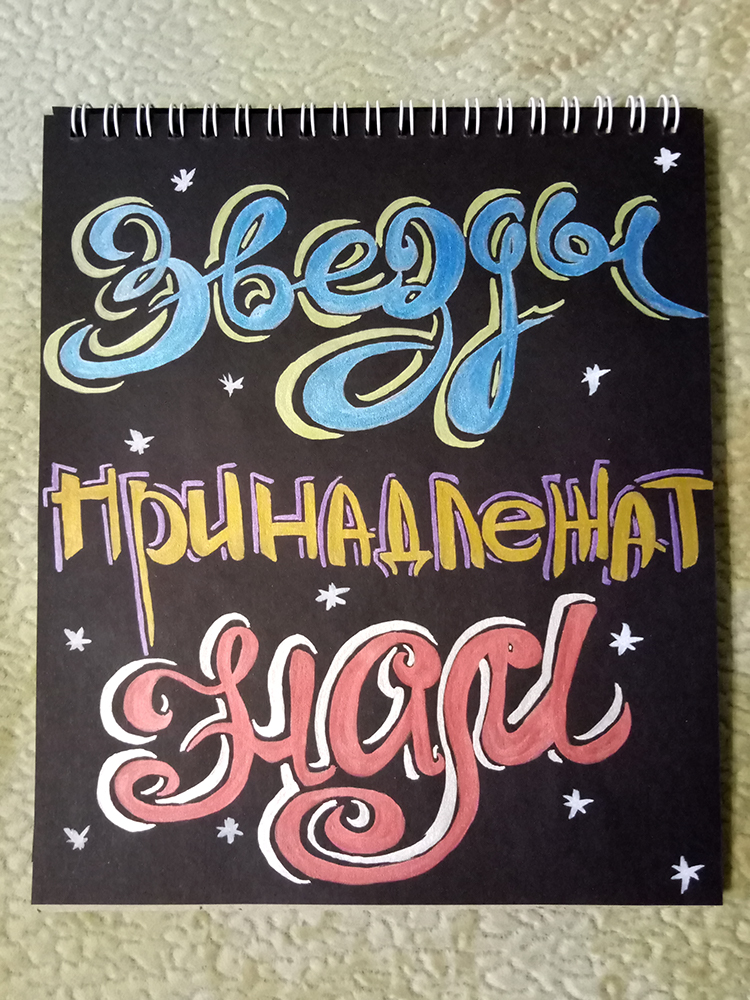 Звезды
принадлежат
нам